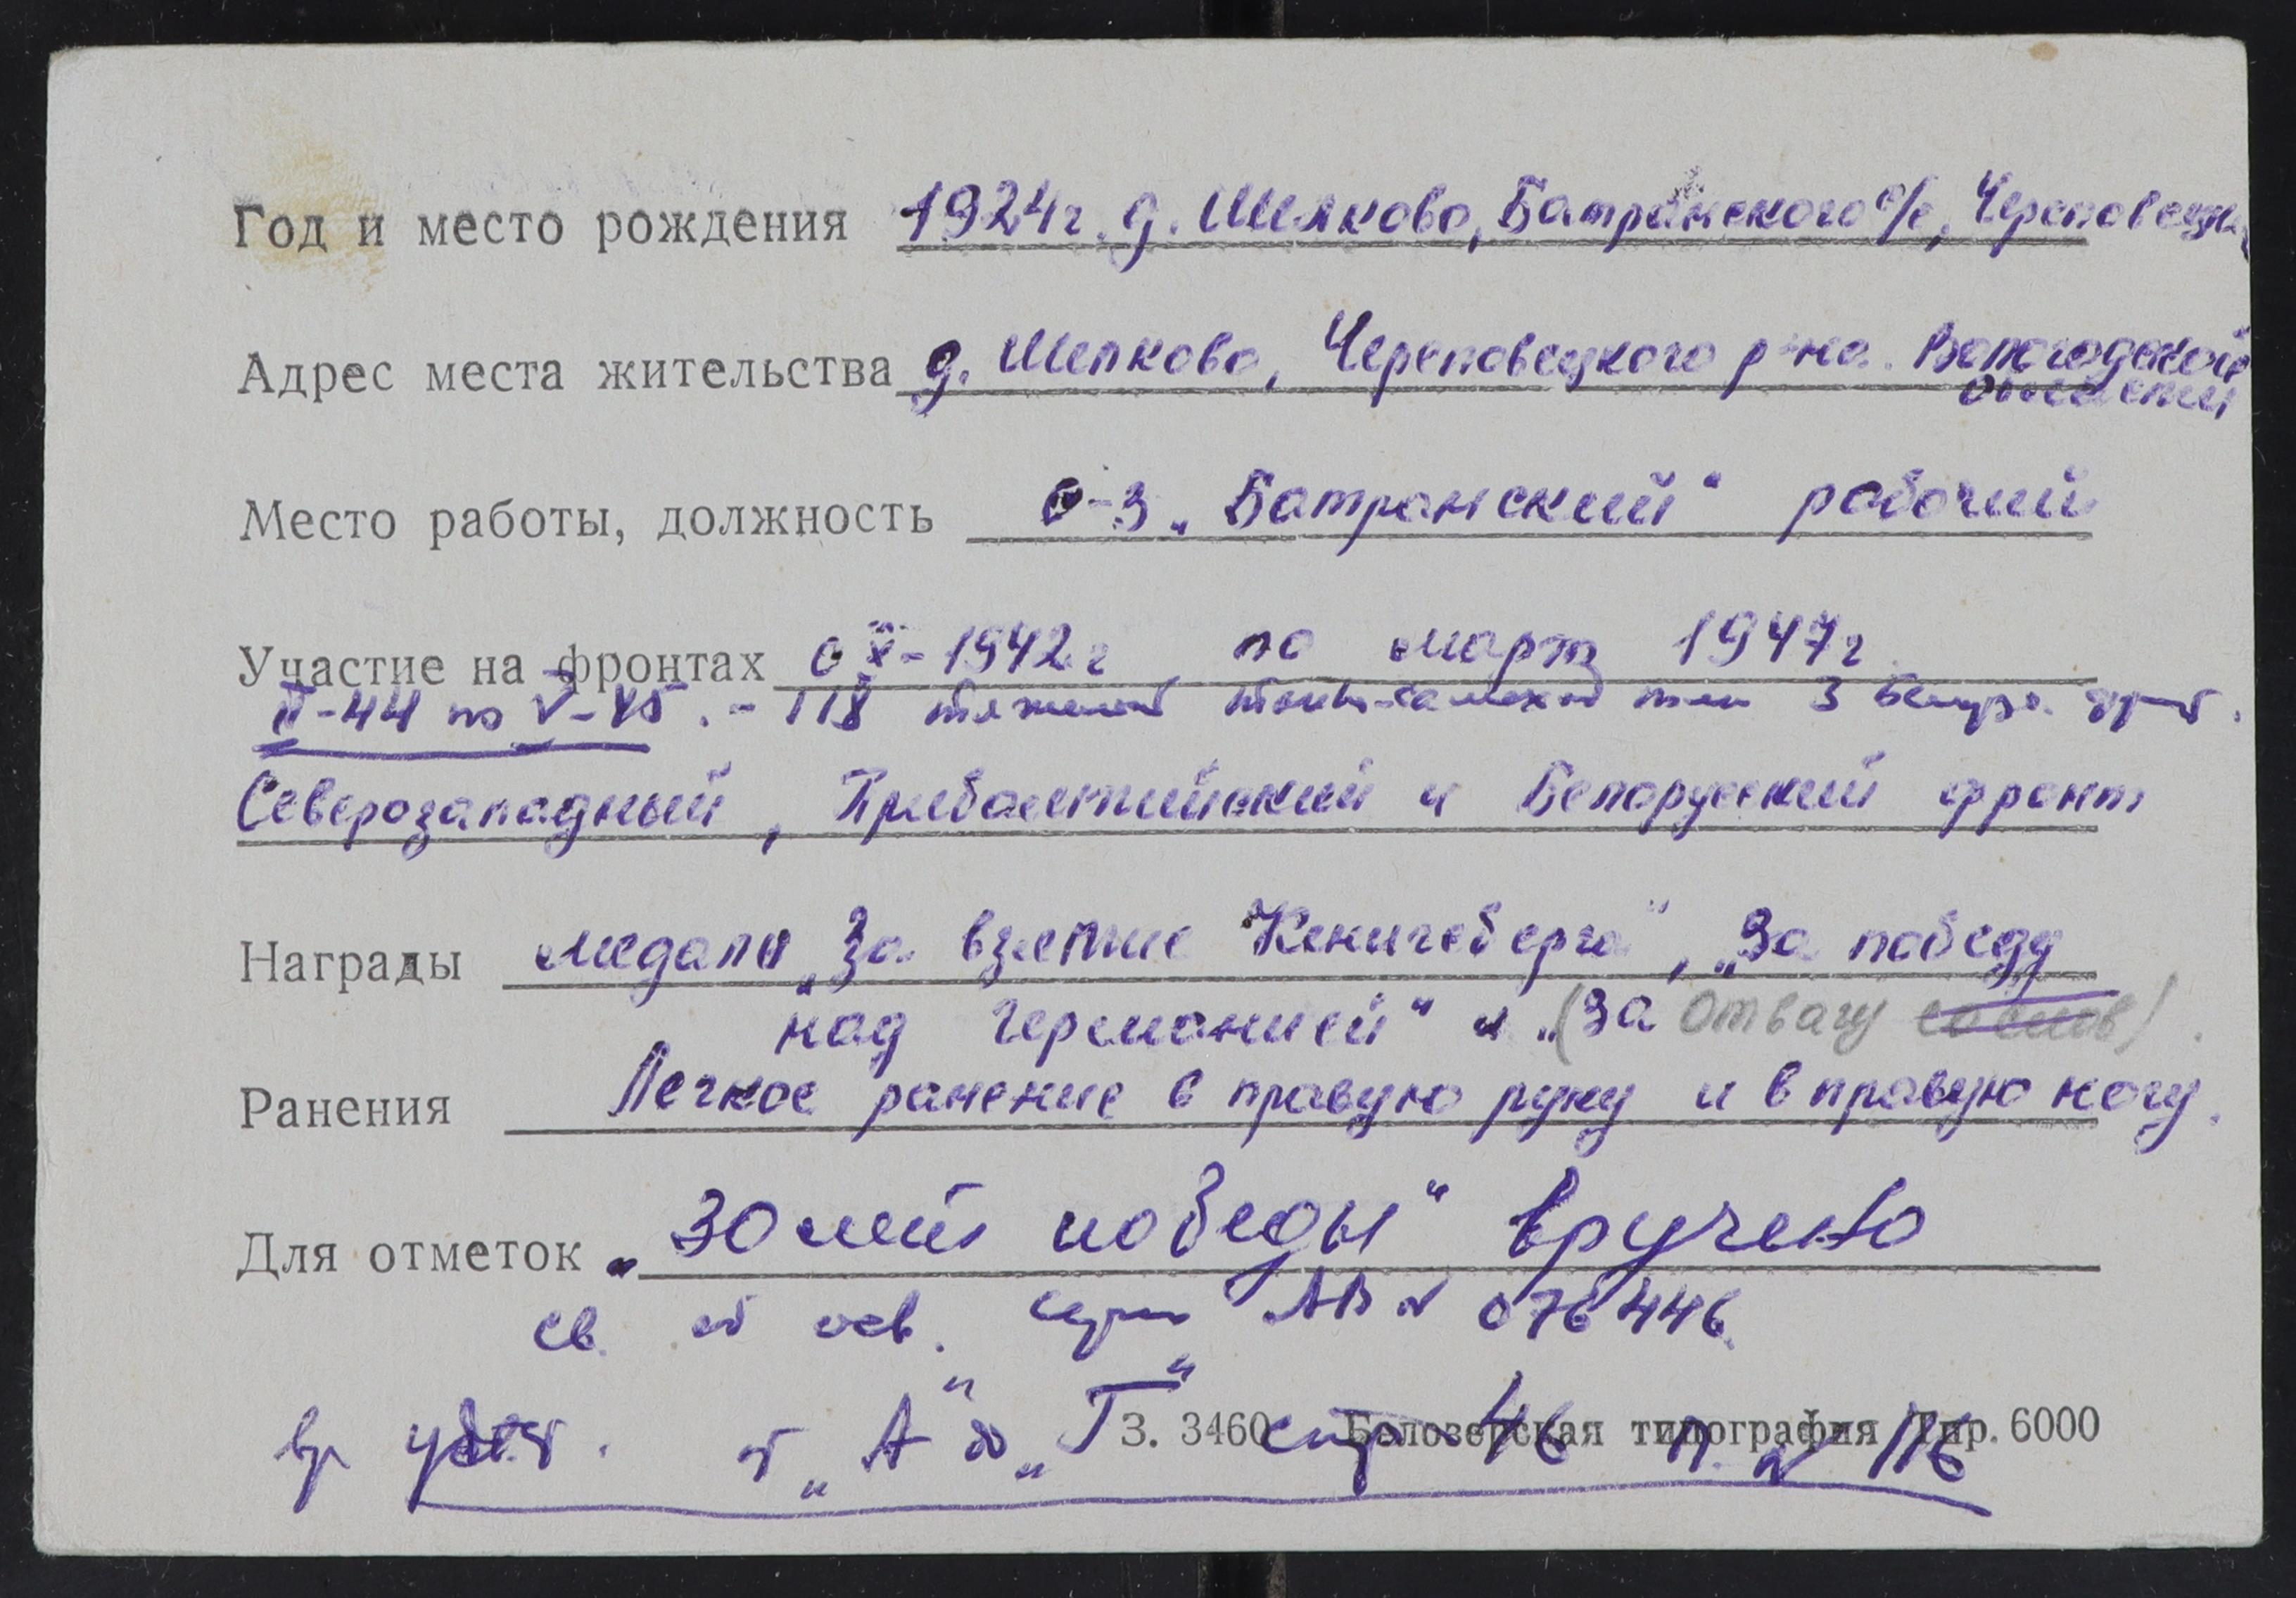 Год и место рождения 1924г. д. Шелково, Батранского с/с, Череповецк
Адрес места жительства д. Шелково, Череповецкого р-на. Вологодской
области
Место работы, должность с-з „Батранский“ рабочий
Участие на фронтах с X-1942г по март 1947г.
II-44 по V-45. - 118 тяжелой танко-самоход 3 Белорус.
Северозападный, Прибалтийский и Белорусский фронт
Награды медали „За взятие Кенигсберга“, „За победу
над Германией“ и „(За отвагу
Ранения Легкое ранение в правую руку и в правую ногу.
Для отметок „30 лет победы“ вручено
св. серия АВ № 076446.
вр удост. от „А“ до „Г“ стр 46 п. № 116
З. 3460 Белозерская типография Тир. 6000